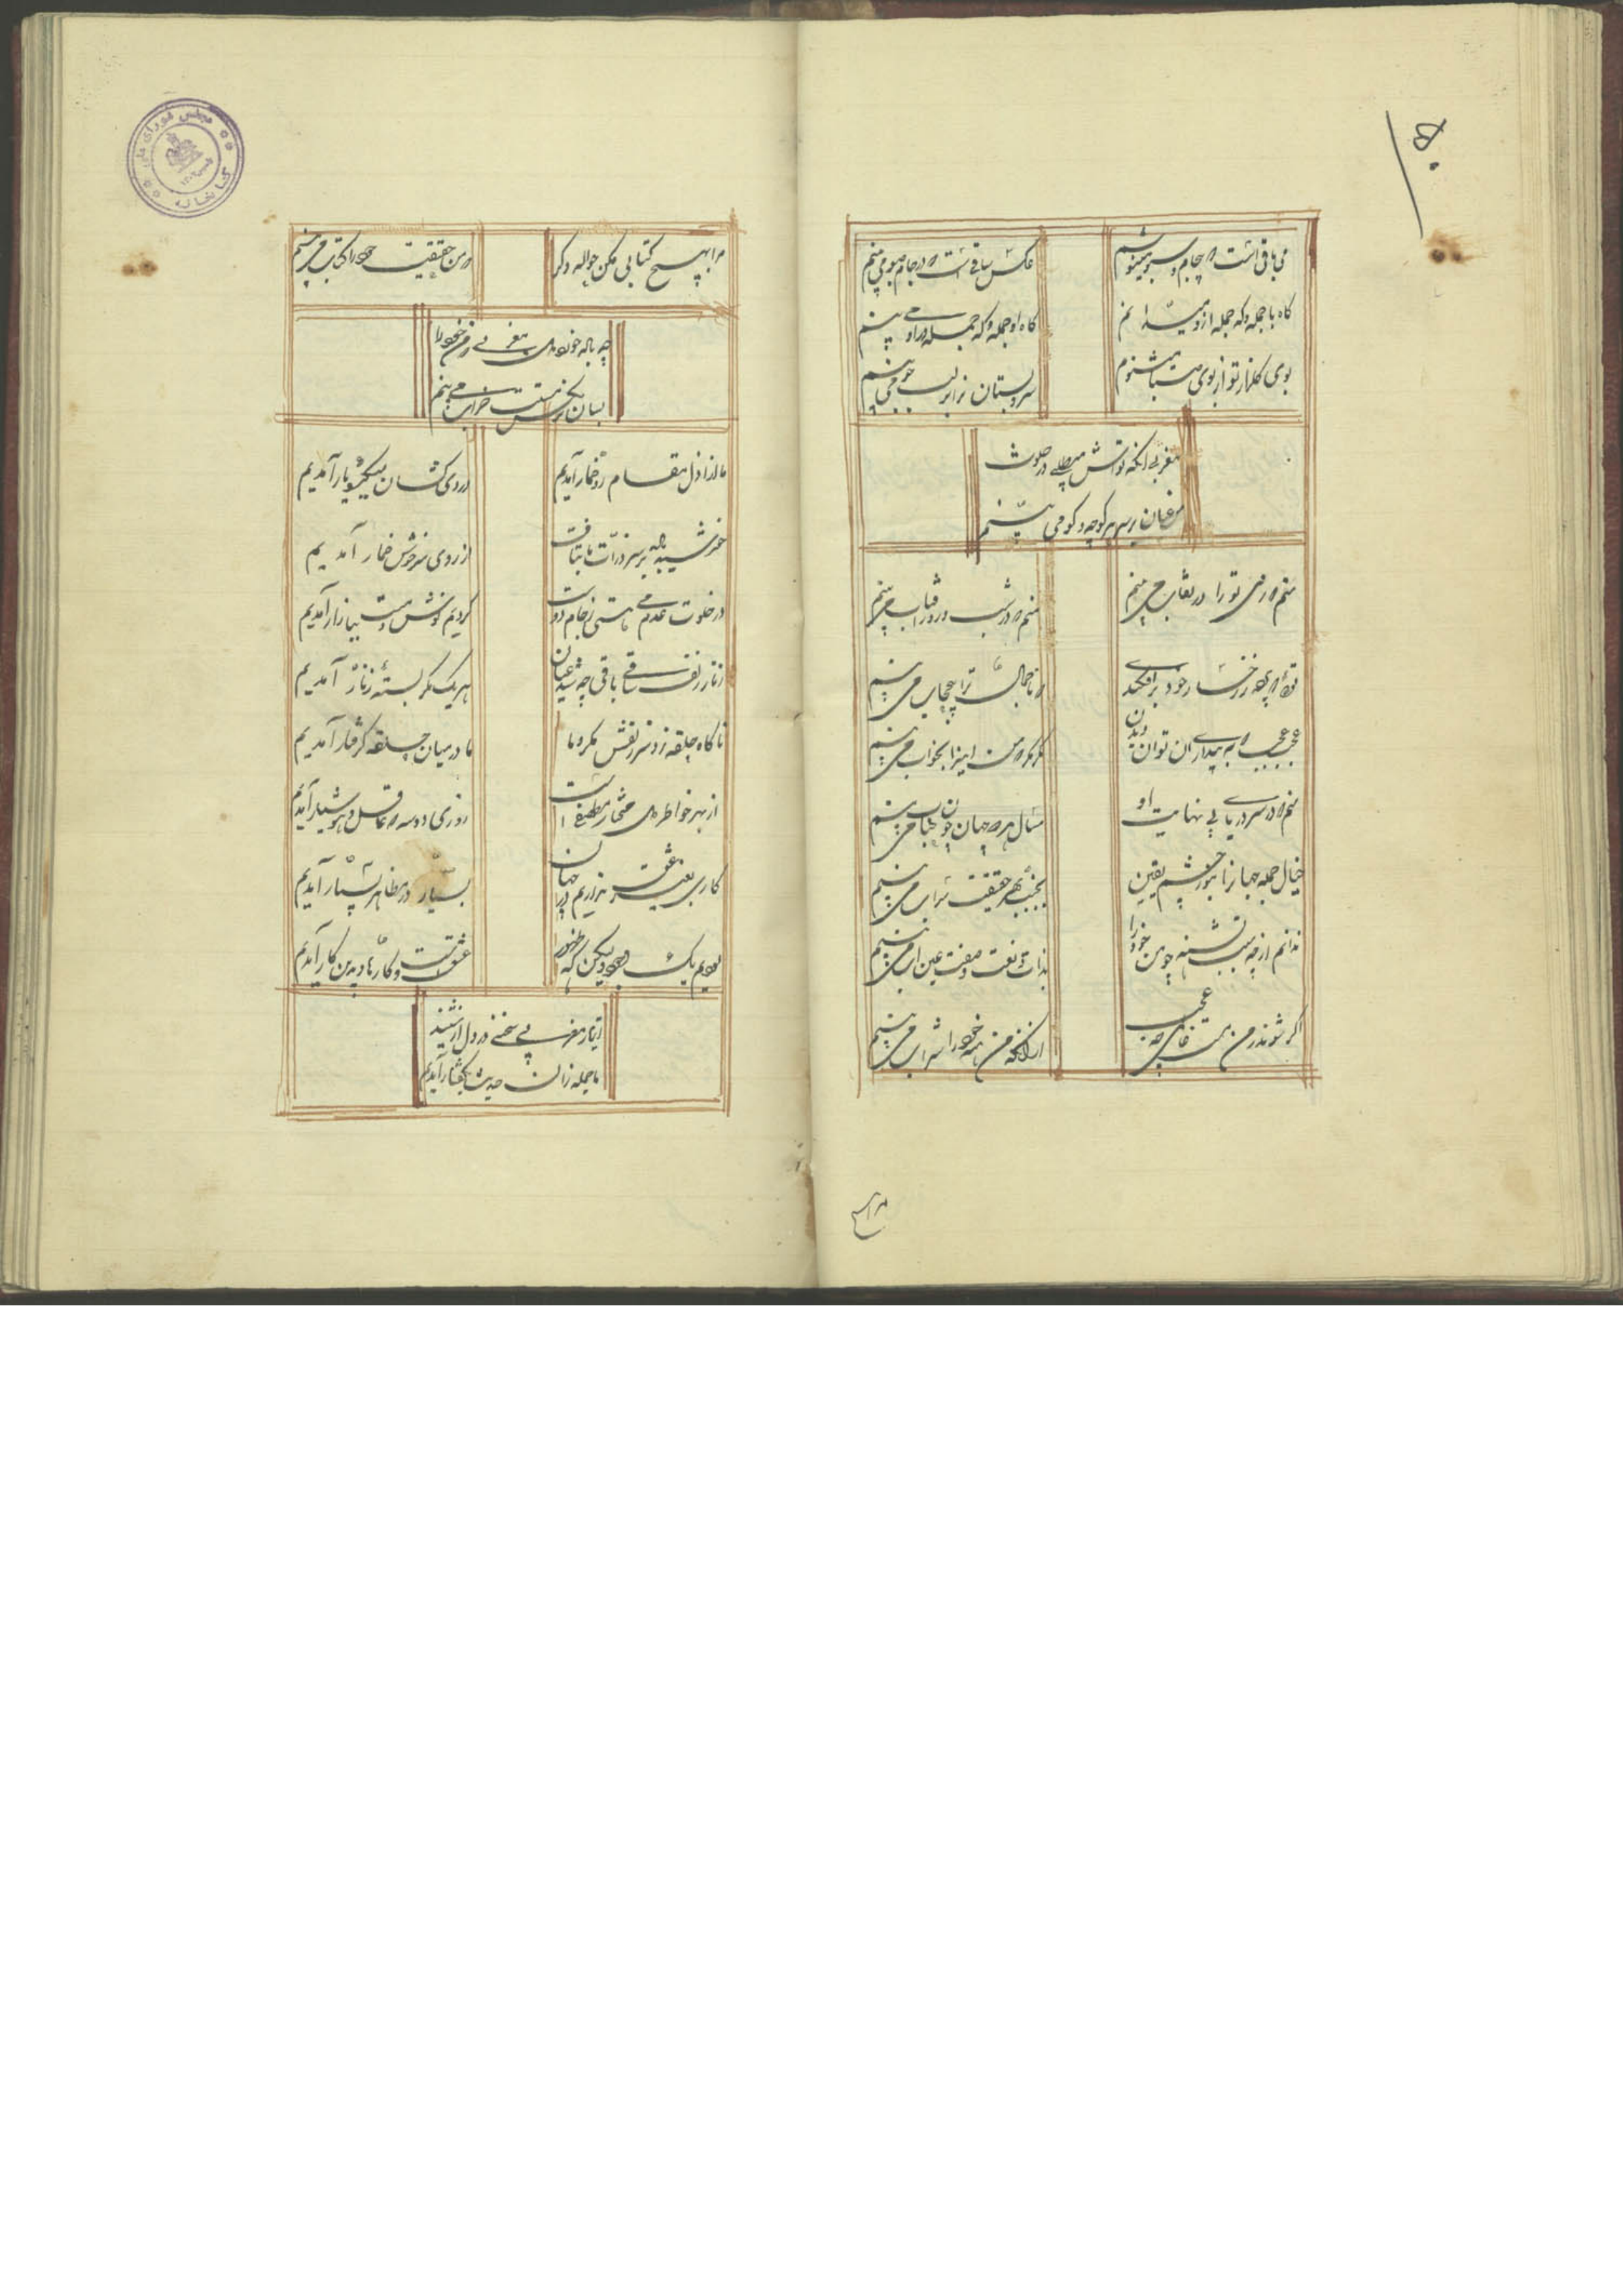 ۵۰
می باقی است که بی جام و سبو مینوشم
عکس ساقی است که در جام و سبو می بینم
گاه با جمله و گه جمله ازو میدانم
گاه او جمله و گه جمله در او می بینم
بوی گلزار تو از بوی صبا میشنوم
سرو بستان ترا بر لب جو می بینم
مغربی آنکه تواش میطلبی در خلوت
من عیان بر سر هر کوچه و کو می بینم
منم که روی تو را در نقاب می بینم
منم که در شب و روز آفتاب می بینم
توئی که پرده ز رخسار خود برافکندی
که با جمال ترا بی حجاب می بینم
عجب عجب که به بیداری آن توان دیدن
مگر مگر که من این را بخواب می بینم
منم که در سر دریای بی نهایت او
مثال هر دو جهان چون حباب می بینم
خیال جمله جهان را بنور چشم یقین
بجنب بحر حقیقت سراب می بینم
ندانم از چه سبب تشنه چون خود را
بذات و نعت و صفت عین آب می بینم
اگر شوند ز من مست قاری چه عجب
از آنکه من همه خود را شراب می بینم
مرا بهیچ کتابی مکن حواله دگر
که من حقیقت خود را کتاب می بینم
چه باله خونده مغربی ز من خود را
بسان گنج خراب می بینم
ما از ازل مقام و خمار آمدیم
دردی کشان میکده یار آمدیم
خورشید بر سر ذرات ما بتافت
از روی سرخوش خمار آمدیم
در خلوت عدم می هستی ز جام دوست
کردیم نوش و مست ببازار آمدیم
زنار زلف ساقی باقی چو شد عیان
هر یک کمر بسته زنار آمدیم
ناگاه حلقه زد سر زلفش بگرد ما
ما در میان حلقه گرفتار آمدیم
از بهر خواطر مختار مصطفی است
روزی دو سه که عاقل و هوشیار آمدیم
کاری بغیر عشق نداریم در جهان
عشق است و کار ما و بدین کار آمدیم
بودیم یک وجود ولیکن گه ظهور
بسیار در مظاهر بسیار آمدیم
ایثار مغربی سخنی در دل از شنید
ما جمله زان حدیث بگفتار آمدیم
مجلس شورای ملی
کتابخانه